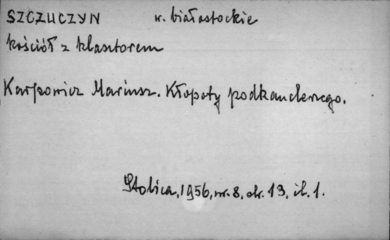 SZCZUCZYN w. białostockie
kościół z klasztorem
Karpowicz Mariusz. Kłopoty podkanclerzego.
Stolica, 1956, nr. 8, str. 13, il. 1.